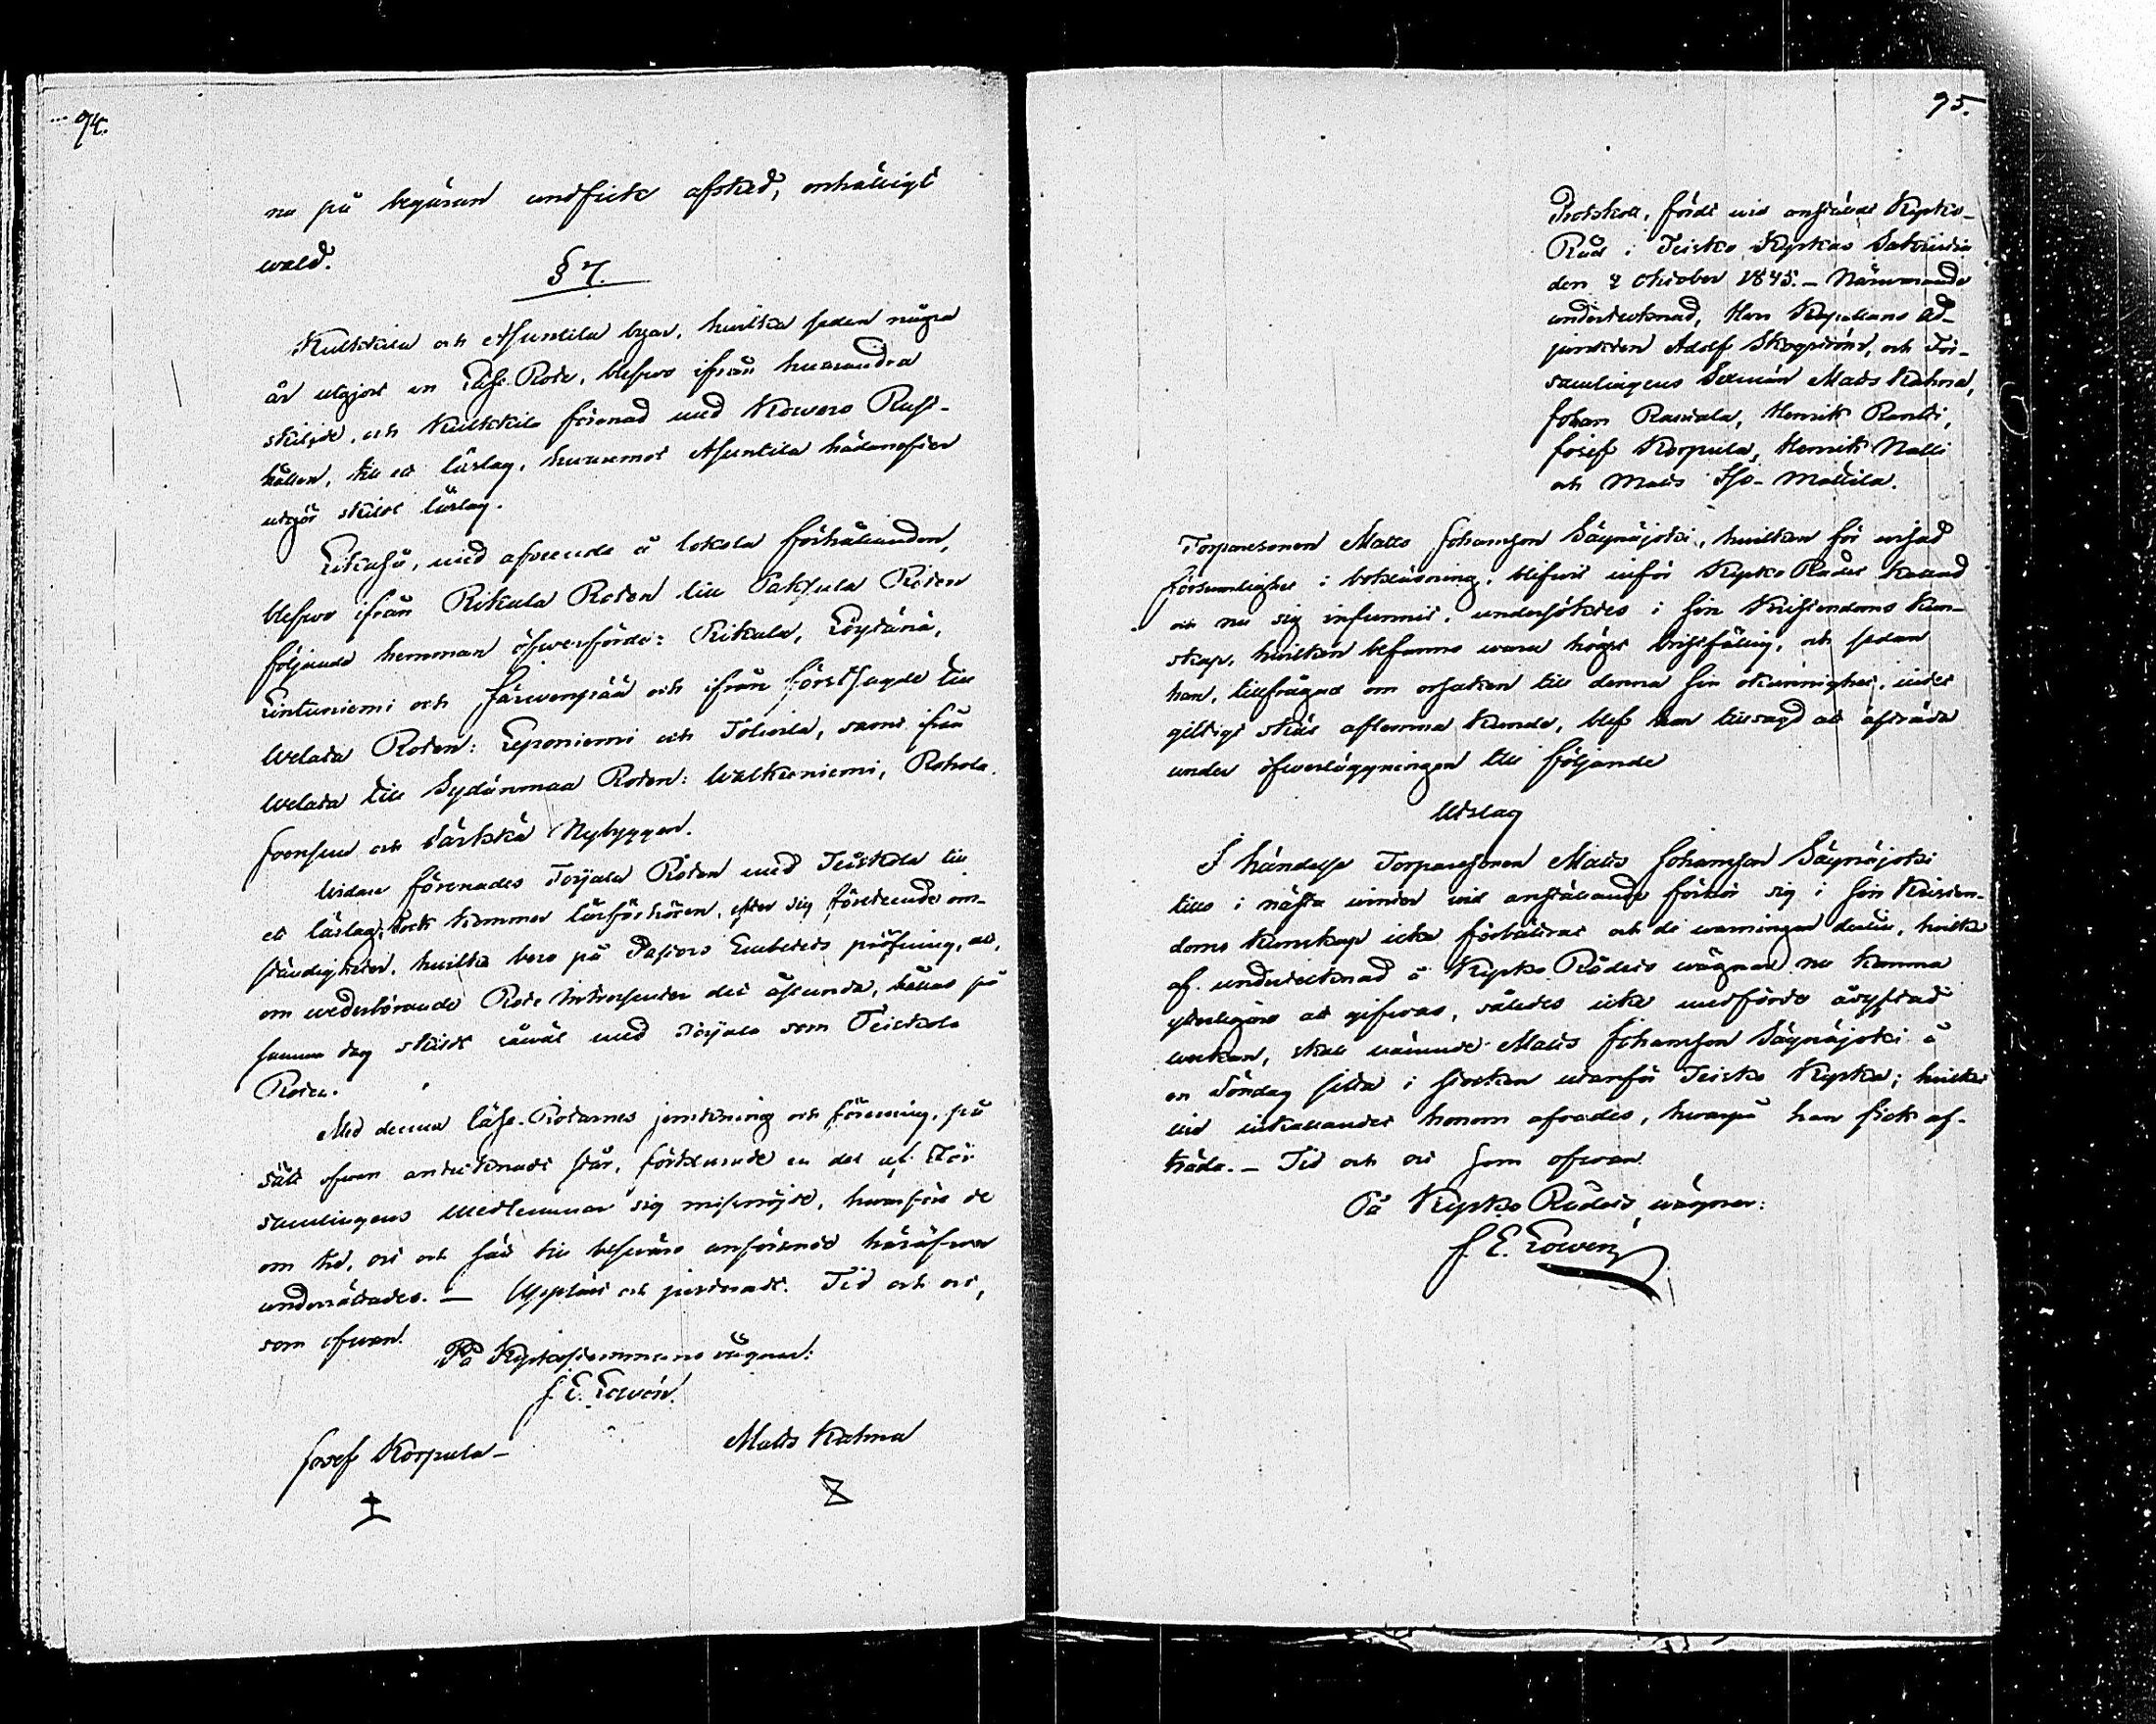 94.
nu på begäran undfick afsked, enhälligt
wald.
§ 7.
Kulkkila och Asuntila byar, hwilka sedan några
år utgjort en Läse-Rote, blefwo ifrån hwarandra
skiljde, och Kulkkila förenad med Kowero Rust-
hållen, till ett läslag, hwaremot Asuntila hädanefter
utgör skildt läslag.
Likaså, med afseende å lokala förhållanden,
blefwo ifrån Rikala Roten till Paksula Roten
följande hemman öfwerförde: Rikala, Löytänä,
Lintuniemi och Järwenpää och ifrån förstsagde till
Welata Roten: Leponiemi och Toloila, samt ifrån
Welata till Sydänmaa Roten: Walkeniemi, Rohola
Joensuu och Särkkä Nybyggen.
Widare förenades Torjala Roten med Teiskola till
ett läslag, dock kommer läsförhören, efter sig företeende om-
ständigheter, hwilka bero på Pastors Embetets pröfning, att,
om wederbörande Rote Intressenter det åstunda, hållas på
samma dag skildt såwäl med Torjala som Teiskola
Roten.
Med denna läse-Rotarnes jemkning och förening, på
sätt ofwan antecknadt står, förklarade en del af För-
samlingens Medlemmar sig missnöjde, hwarföre de
om tid, ort och sätt till beswärs anförande häröfwer
underrättades. — Uppläst och justeradt. Tid och ort,
som ofwan.
På Kyrkostämmans wägnar:
J. E. Lowén.
Josef Korpula
Matts Kahma
95.
Protokoll, fördt wid anstäldt Kyrko-
Råd i Teisko Kyrkas Sakristia
den 2 Oktober 1845. – Närwarande
undertecknad, Herr Kapellans Ad-
junkten Adolf Skogström, och För-
samlingens Sexmän Matts Kahma,
Johan Rautala, Henrik Pentti,
Josef Korpula, Henrik Nalli
och Matts Iso-Mattila.
Torparesonen Matts Johansson Säynäjoki, hwilken för wisad
försumlighet i bokläsning, blifwit inför Kyrko Rådet kallad
och nu sig infunnit, undersöktes i sin Kristendoms kun-
skap, hwilken befanns wara högst bristfällig, och sedan
han, tillfrågad om orsaken till denna sin okunnighet, intet
giltigt skäl aflemna kunde, blef han tillsagd att afträda
under öfwerläggningen till följande
Utslag
I händelse Torparesonen Matts Johansson Säynäjoki
tills i nästa winter wid anställande förhör sig i sin Kristen-
doms kunskap icke förbättrat och de warningar deri, hwilka
af undertecknad å Kyrko Rådets wägnar nu komma
ytterligare att gifwas, således icke medförde åsyftad
werkan, skall nämnde Matts Johansson Säynäjoki å
en Söndag sitta i stocken utanför Teisko Kyrka; hwilket
wid inkallandet honom afsades, hwarpå han fick af-
träda. – Tid och ort som ofwan.
På Kyrko Rådets wägnar:
J. E. Lowén